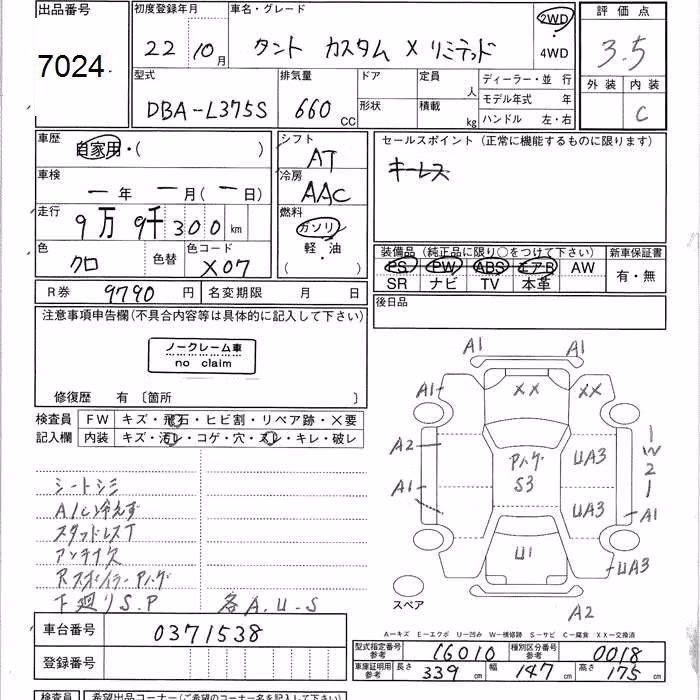 出品番号
7024
初度登録年月
22 10月
車名・グレード
タント カスタム X リミテッド
2WD
4WD
評価点
3.5
外装 内装
C
型式
DBA-L375S
排気量
660 CC
ドア
形状
定員 人
積載 kg
ディーラー・並 行
モデル年式 年
ハンドル 左・右
車歴
自家用・( )
車検
ー年 ー月(ー日)
走行
9万9千300km
色
クロ
色替
色コード
X07
シフト
AT
冷房
AAC
燃料
ガソリン
軽・油
( )
セールスポイント (正常に機能するものに限ります)
キーレス
装備品 (純正品に限り○をつけて下さい)
PS PW ABS エアB AW
SR ナビ TV 本革
新車保証書
有・無
後日品
R券 9790円
名変期限 月 日
注意事項申告欄(不具合内容等は具体的に記入して下さい)
ノークレーム車
no claim
修復歴 有〔箇所 〕
検査員
記入欄
FW キズ・飛石・ヒビ割・リペア跡・X要
内装 キズ・汚レ・コゲ・穴・スレ・キレ・破レ
シートシミ
A/C冷えず
スタッドレスT
アンテナ欠
Rスポイラー Aハゲ
下廻りS.P 各A.U.S
A1 A1
A1 XX XX
A2 Aハゲ UA3
S3
A1 UA3 A1
W2
U1 UA3
スペア
A2
A…キズ E…エクボ U…凹み W…補修跡 S…サビ C…腐食 XX…交換済
車台番号 0371538
登録番号
型式指定番号 参考 16010
種別区分番号 参考 0018
車庫証明用 参考 長さ 339 cm 幅 147 cm 高さ 175 cm
検査員
希望出品コーナー(ご希望のコーナー名を記入して下さい)